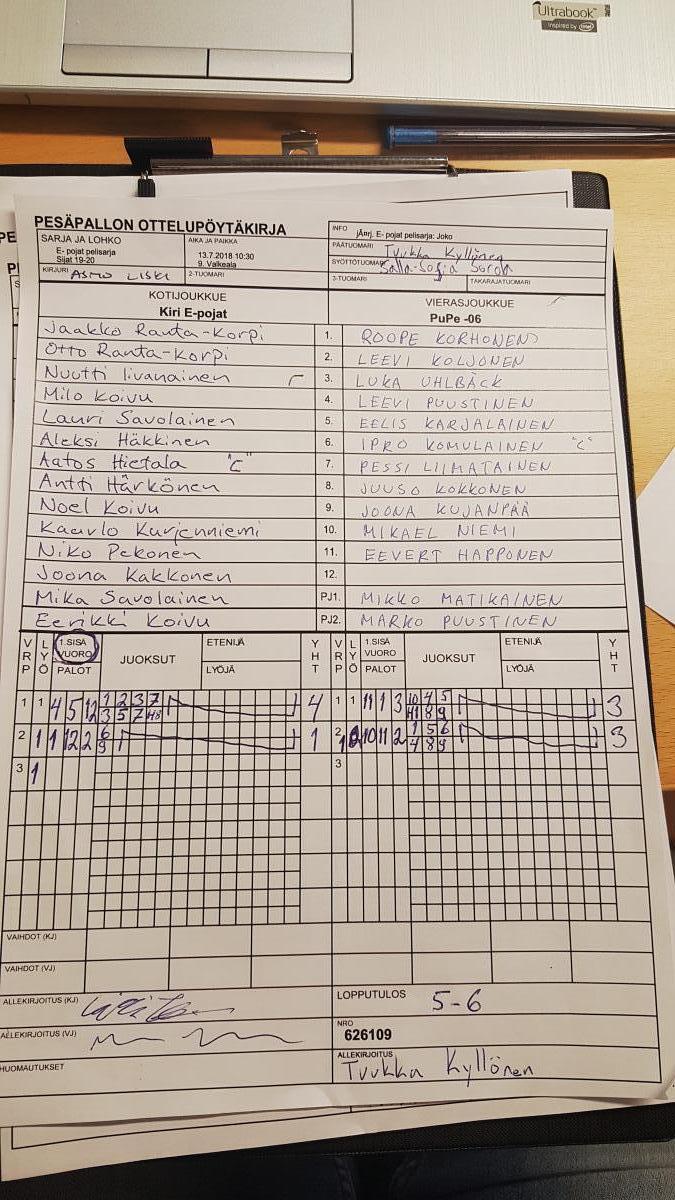 Ultrabook™
inspired by intel
PESÄPALLON OTTELUPÖYTÄKIRJA
SARJA JA LOHKO
E- pojat pelisarja
Sijat 19-20
AIKA JA PAIKKA
13.7.2018 10:30
9. Valkeala
KIRJURI ASMO LISKI
2-TUOMARI
INFO
jÄnrj. E- pojat pelisarja: Joko
PÄÄTUOMARI Tuukka Kyllönen
SYÖTTÖTUOMARI Salla-Sofia
3-TUOMARI
TAKARAJATUOMARI
KOTIJOUKKUE
Kiri E-pojat
VIERASJOUKKUE
PuPe -06
Jaakko Ranta-Korpi 1. ROOPE KORHONEN
Otto Ranta-Korpi 2. LEEVI KOLJONEN
Nuutti Iivanainen 3. LUKA UHLBÄCK
Milo Koivu 4. LEEVI PUUSTINEN
Lauri Savolainen 5. EELIS KARJALAINEN
Aleksi Häkkinen 6. IPRO KOMULAINEN "C"
Aatos Hietala "C" 7. PESSI LIIMATAINEN
Antti Härkönen 8. JUUSO KOKKONEN
Noel Koivu 9. JOONA KUJANPÄÄ
Kaarlo Kurjenniemi 10. MIKAEL NIEMI
Niko Pekonen 11. EEVERT HAPPONEN
Joona Kakkonen 12.
Mika Savolainen PJ1. MIKKO MATIKAINEN
Eerikki Koivu PJ2. MARKO PUUSTINEN
VRP LYÖ 1.SISÄ VUORO PALOT JUOKSUT ETENIJÄ LYÖJÄ YHT VRP LYÖ 1.SISÄ VUORO PALOT JUOKSUT ETENIJÄ LYÖJÄ YHT
1 1 4 5 12 1 2 3 7 4 1 1 11 1 3 10 4 5 3
3 5 7 11 8 9
2 1 1 12 2 6 1 2 10 11 2 1 5 6 3
9 4 8 9
3 1 3
VAIHDOT (KJ)
VAIHDOT (VJ)
ALLEKIRJOITUS (KJ)
ALLEKIRJOITUS (VJ)
HUOMAUTUKSET
LOPPUTULOS 5-6
NRO
626109
ALLEKIRJOITUS
Tuukka Kyllönen